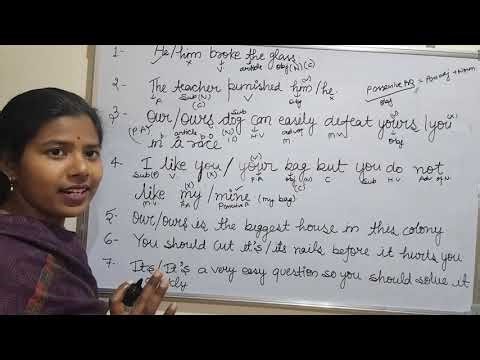 1- He/him broke the glass
x V article obj (N) (C)
2- The teacher punished him/he.
Sub (N) (C) V obj x
Possessive PQ = Poss adj + Noun
obj
3- Our/ours dog can easily defeat yours/you (x)
(P.A) (N) H.V adv M.V obj
in a race
4. I like you/your bag but you do not
Sub V (x) P.A obj (N) C Sub H.V
like my/mine (my bag)
M.V P.A
5- Our/ours is the biggest house in this colony
6- You should cut it's/its nails before it hurts you
7- Its/It's a very easy question so you should solve it